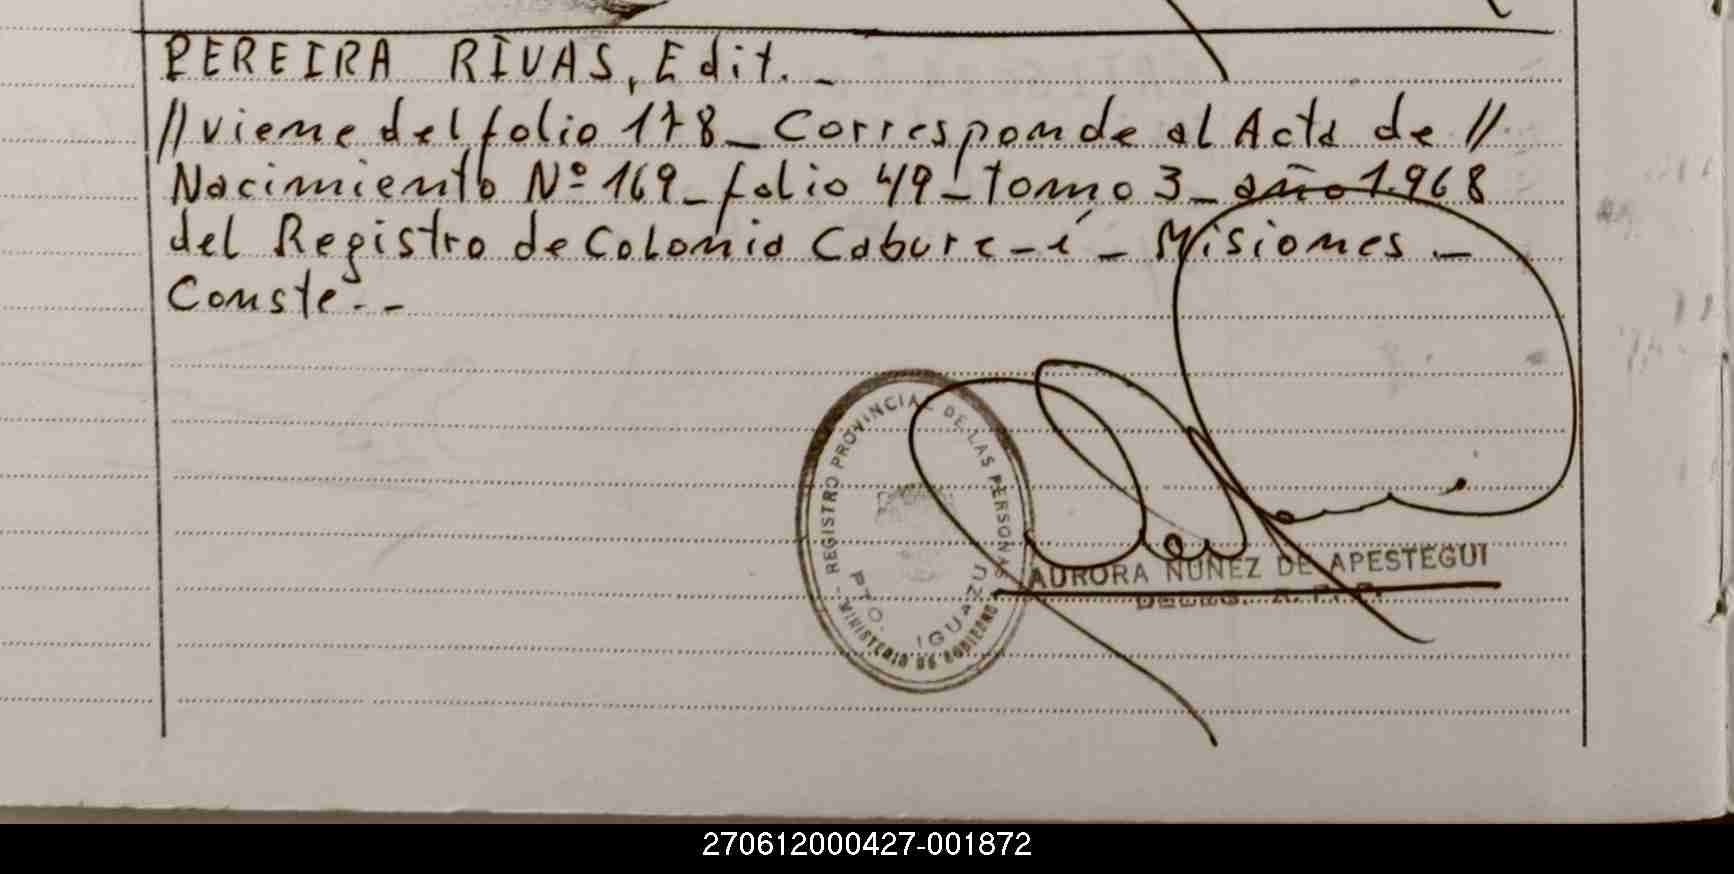 PEREIRA RIVAS, Edit. _
//viene del folio 178_ Corresponde al Acta de //
Nacimiento Nº 169_ folio 49_ tomo 3_ año 1.968
del Registro de Colonia Cabure-í - Misiones _
Conste.- -
REGISTRO PROVINCIAL DE LAS PERSONAS
PTO. IGUAZU
MINISTERIO DE GOBIERNO
AURORA NUÑEZ DE APESTEGUI
270612000427-001872